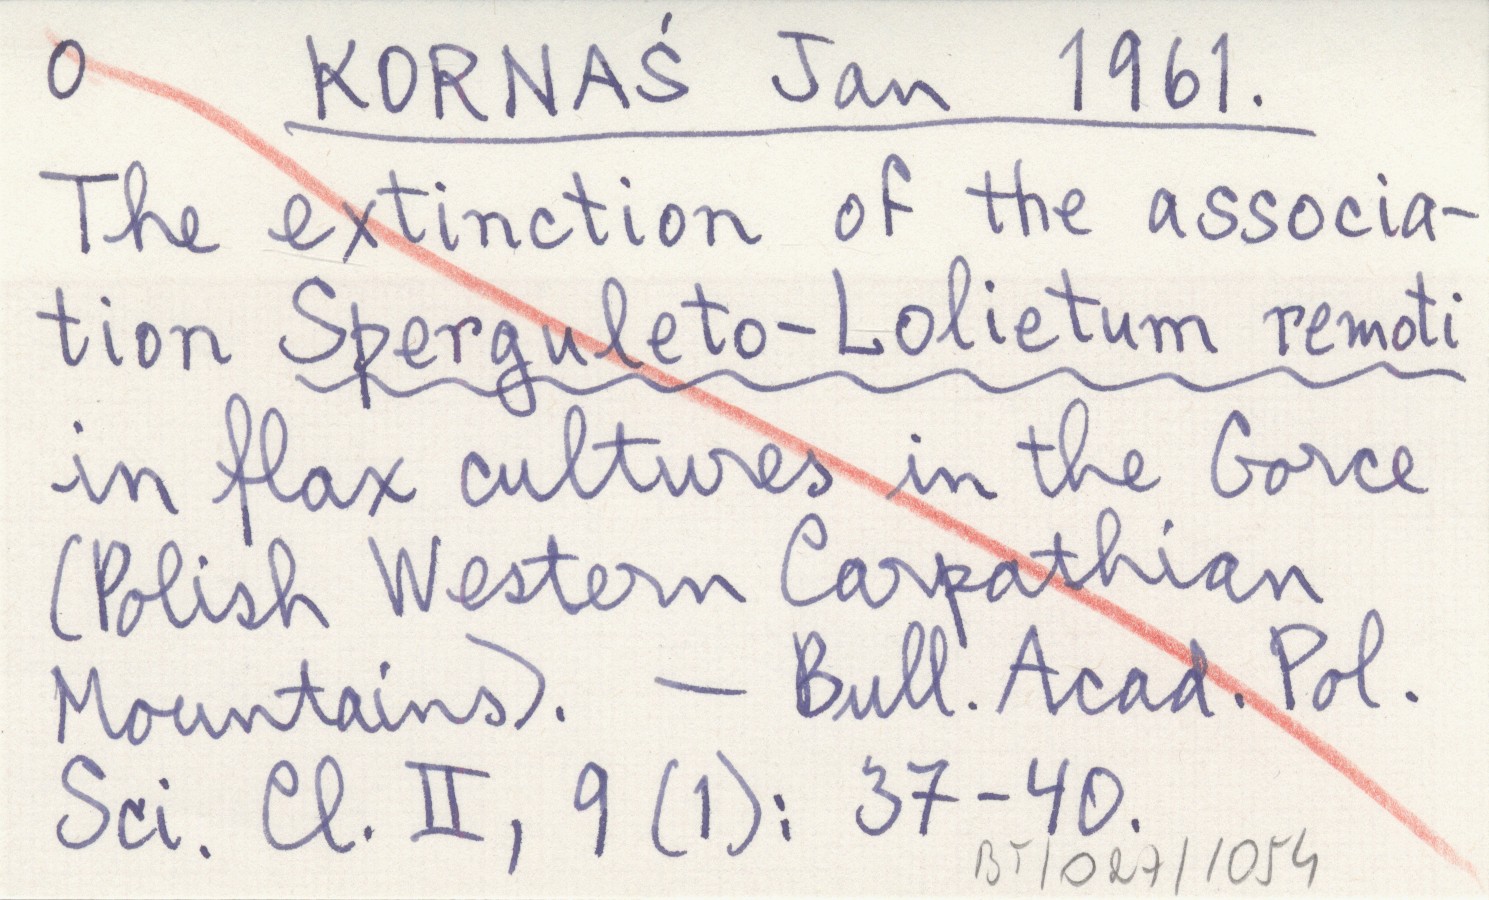 O KORNAŚ Jan 1961.
The extinction of the associa-
tion Sperguleto-Lolietum remoti
in flax cultures in the Gorce
(Polish Western Carpathian
Mountains). — Bull. Acad. Pol.
Sci. Cl. II, 9 (1): 37-40.
BT/027/1054